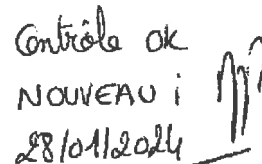 Contrôle ok
NOUVEAU i
28/01/2024